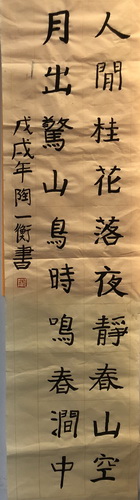 人閒桂花落夜靜春山空
月出驚山鳥時鳴春澗中
戊戌年陶一衡書